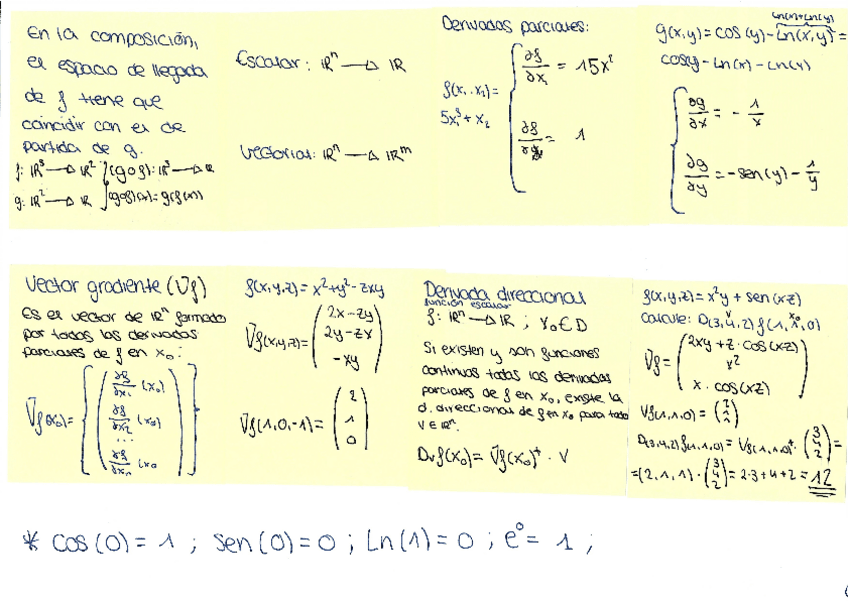 En la composición,
el espacio de llegada
de f tiene que
coincidir con el de
partida de g.
f: ℝ³ → ℝ² } (g∘f): ℝ³ → ℝ
g: ℝ² → ℝ } (g∘f)(x) = g(f(x))
Escalar: ℝⁿ → ℝ
Vectorial: ℝⁿ → ℝᵐ
Derivadas parciales:
f(x₁, x₂) =
5x₁³ + x₂
∂f/∂x₁ = 15x²
∂f/∂y = 1
Ln(x)+Ln(y)
g(x,y) = cos(y) - Ln(x,y) =
cosy - Ln(x) - Ln(y)
∂g/∂x = - 1/x
∂g/∂y = -sen(y) - 1/y
Vector gradiente (∇f)
Es el vector de ℝⁿ formado
por todas las derivadas
parciales de f en x₀:
∇f(x₀) =
∂f/∂x₁ (x₀)
∂f/∂x₂ (x₀)
...
∂f/∂xₙ (x₀
f(x,y,z) = x² + y² - zxy
∇f(x,y,z) = (2x - zy
2y - zx
-xy)
∇f(1,0,-1) = (2
1
0)
Derivada direccional
función escalar
f: ℝⁿ → ℝ ; x₀ ∈ D
Si existen y son funciones
continuas todas las derivadas
parciales de f en x₀, existe la
d. direccional de f en x₀ para todo
v ∈ ℝⁿ.
Dvf(x₀) = ∇f(x₀)ᵗ · v
f(x,y,z) = x²y + sen(xz)
Calcule: D(3,4,2) f(1,1,0)
v x₀
∇f = (2xy + z · cos(xz)
x²
x · cos(xz))
∇f(1,1,0) = (2
1
1)
D(3,4,2) f(1,1,0) = ∇f(1,1,0)ᵗ · (3 4 2) =
= (2,1,1) · (3 4 2) = 2·3+4+2 = 12
* cos(0) = 1 ; sen(0) = 0 ; Ln(1) = 0 ; e⁰ = 1 ;